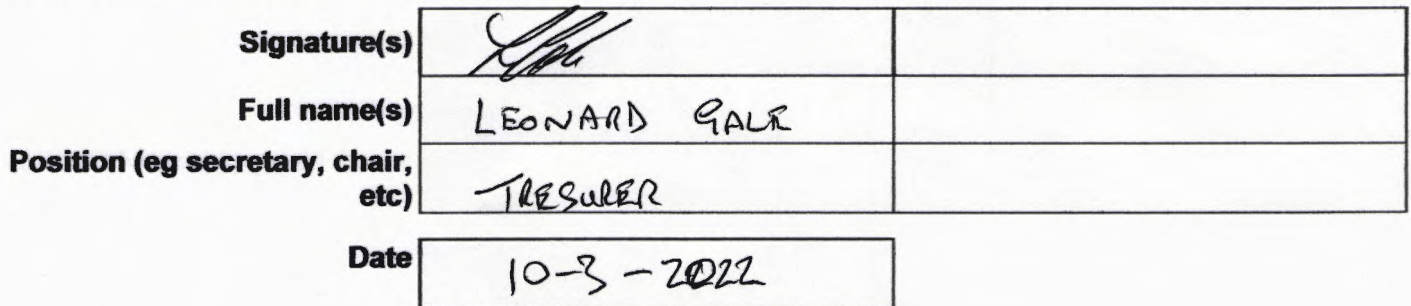 Signature(s)
Full name(s) LEONARD GALE
Position (eg secretary, chair,
etc) TRESURER
Date 10-3-2022